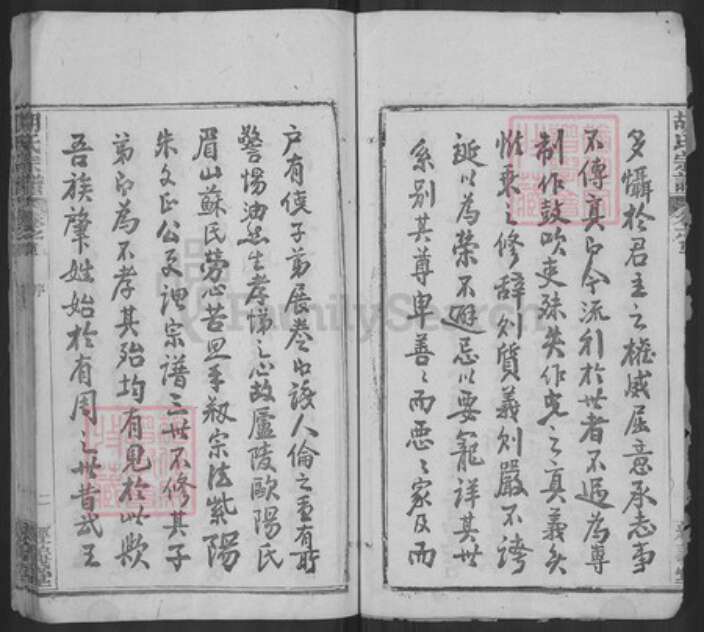 胡氏宗譜
多懾於君主之權威屈意承志事
不傳真即今流行於世者不過為尊
制作鼓吹吏殊失作史之真義矣
惟乘之修辭則質義則嚴不誇
誕以為榮不避忌以要寵詳其世
系別其尊卑善善而惡惡家及而
戶有使子弟展卷即設人倫之重有所
警惕油然生孝悌之心故廬陵歐陽氏
眉山蘇氏勞心苦思手叙宗法紫陽
朱文正公更謂宗譜三世不修其子
弟即為不孝其殆均有見於此歟
吾族肇姓始於有周之世昔武王
胡氏宗譜
序
二
FamilySearch